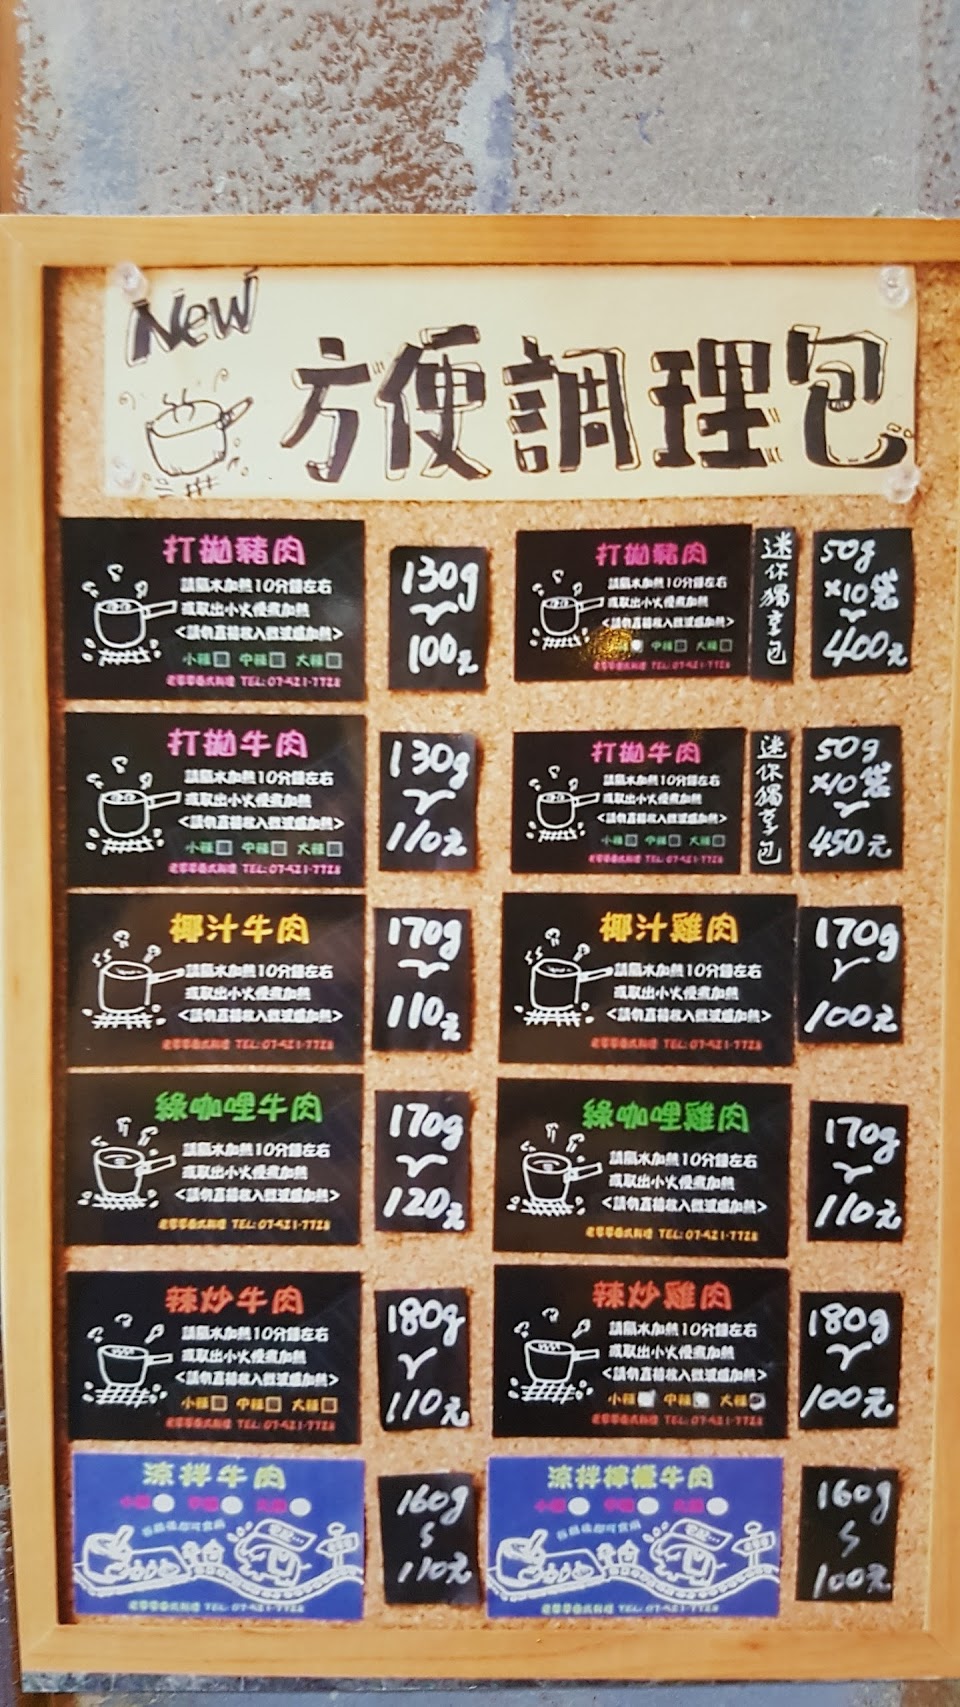 New
方便調理包
打拋豬肉
請隔水加熱10分鐘左右
或取出小火慢煮加熱
<請勿直接放入微波爐加熱>
小辣 中辣 大辣
泰式料理 TEL: 07-521-7728
130g
100元
打拋豬肉
請隔水加熱10分鐘左右
或取出小火慢煮加熱
<請勿直接放入微波爐加熱>
中辣 大辣
泰式料理 TEL: 07-521-7728
迷你獨享包
50g
x10袋
400元
打拋牛肉
請隔水加熱10分鐘左右
或取出小火慢煮加熱
<請勿直接放入微波爐加熱>
小辣 中辣 大辣
泰式料理 TEL: 07-521-7728
130g
110元
打拋牛肉
請隔水加熱10分鐘左右
或取出小火慢煮加熱
<請勿直接放入微波爐加熱>
小辣 中辣 大辣
泰式料理 TEL: 07-521-7728
迷你獨享包
50g
x10袋
450元
椰汁牛肉
請隔水加熱10分鐘左右
或取出小火慢煮加熱
<請勿直接放入微波爐加熱>
泰式料理 TEL: 07-521-7728
170g
110元
椰汁雞肉
請隔水加熱10分鐘左右
或取出小火慢煮加熱
<請勿直接放入微波爐加熱>
泰式料理 TEL: 07-521-7728
170g
100元
綠咖哩牛肉
請隔水加熱10分鐘左右
或取出小火慢煮加熱
<請勿直接放入微波爐加熱>
泰式料理 TEL: 07-521-7728
170g
120元
綠咖哩雞肉
請隔水加熱10分鐘左右
或取出小火慢煮加熱
<請勿直接放入微波爐加熱>
泰式料理 TEL: 07-521-7728
170g
110元
辣炒牛肉
請隔水加熱10分鐘左右
或取出小火慢煮加熱
<請勿直接放入微波爐加熱>
小辣 中辣 大辣
泰式料理 TEL: 07-521-7728
180g
110元
辣炒雞肉
請隔水加熱10分鐘左右
或取出小火慢煮加熱
<請勿直接放入微波爐加熱>
小辣 中辣 大辣
泰式料理 TEL: 07-521-7728
180g
100元
涼拌牛肉
小辣 中辣 大辣
即可食用
泰式料理 TEL: 07-521-7728
160g
110元
涼拌檸檬牛肉
小辣 中辣 大辣
即可食用
泰式料理 TEL: 07-521-7728
160g
100元